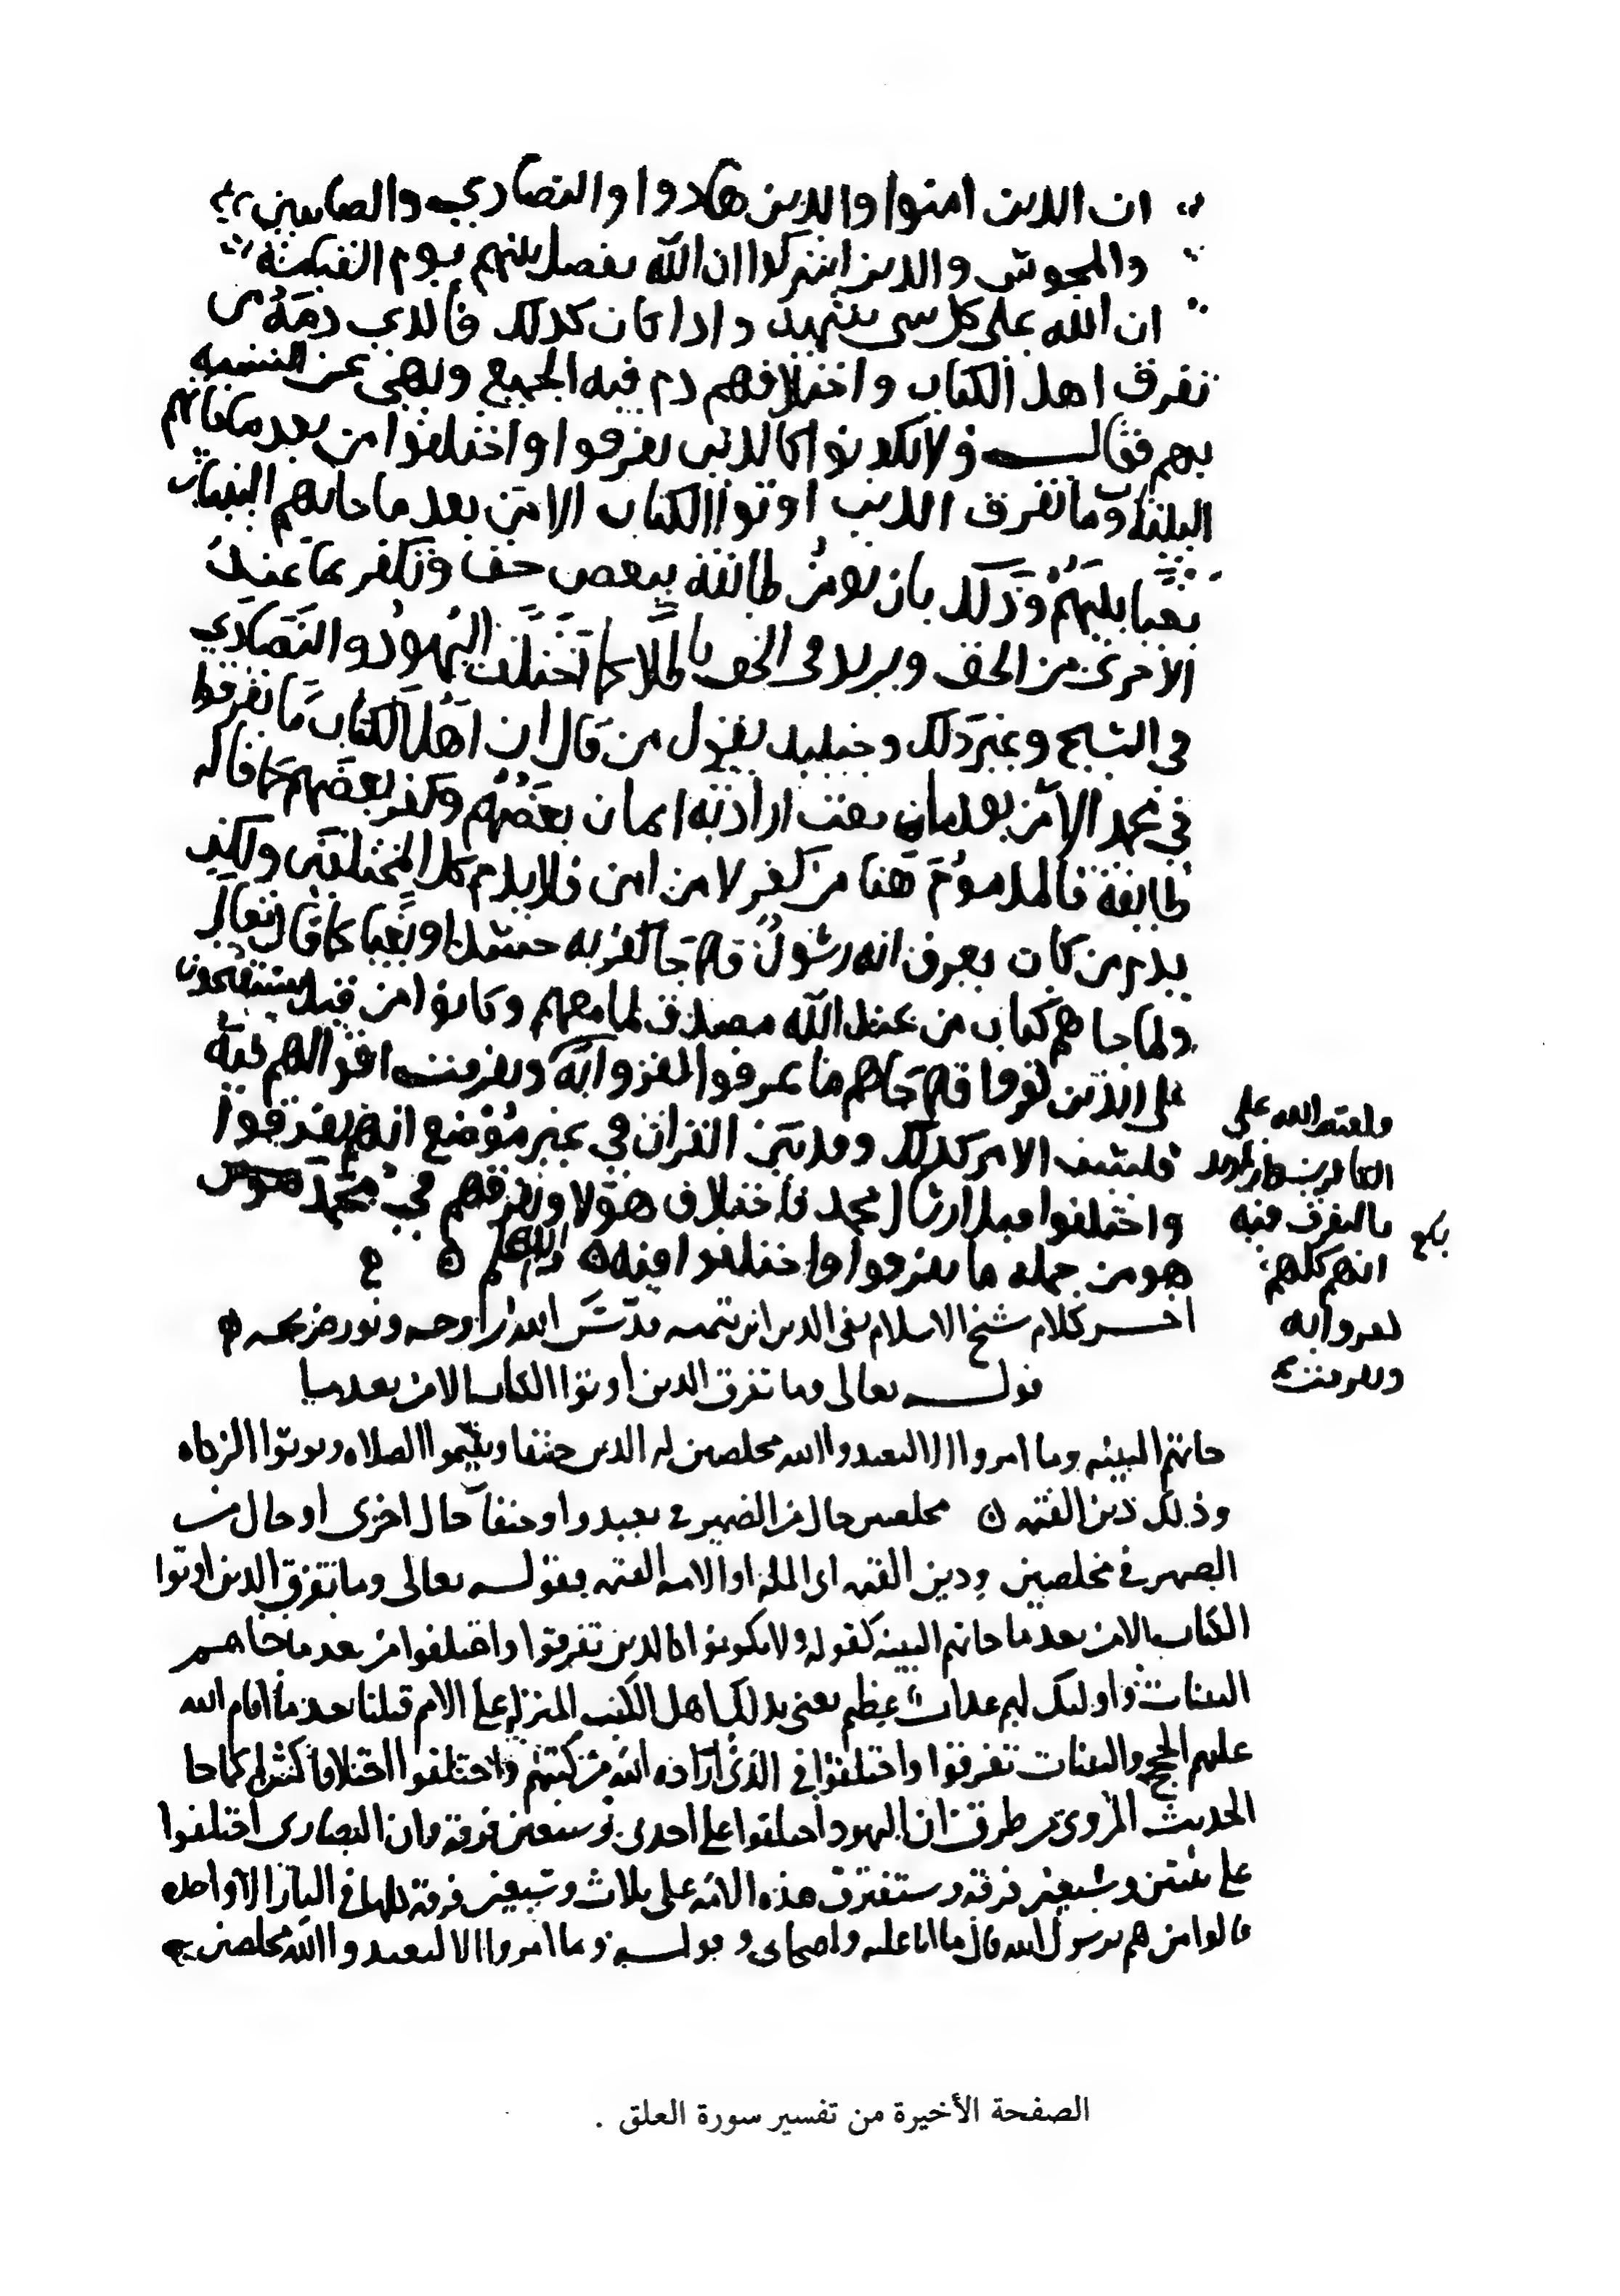 ان الذين امنوا والذين هادوا والنصاري والصابين
والمجوس والذين اشركوا ان الله يفصل بينهم يوم القيمة
ان الله على كل شى شهيد واذا كان كذلك فالذي ذمه من
تفرق اهل الكتاب واختلافهم ذم فيه الجميع ونهى عن التشبه
بهم فقال ولا تكونوا كالذين تفرقوا واختلفوا من بعد ما جاتهم
البينات وما تفرق الذين اوتوا الكتاب الا من بعد ما جاتهم البينات
بغيا بينهم وذلك بان تومن طائفة ببعض حق وتكفر بما عند
الاخرى من الحق ويزيد فى الحق باطلا كما اختلف اليهود والنصاري
في المسيح وغير ذلك وحينيذ يقول من قال ان اهل الكتاب ما تفرقوا
في محمد الا من بعد ما بعث اراد به ايمان بعضهم وكفر بعضهم كما قاله
طايفة فالمذموم هنا من كفر لا من امن فلا يذم كل المختلفين ولكن
يذم من كان يعرف انه رسول فلما جا كفر به حسدا او بغيا كما قال تعالى
ولما جاهم كتاب من عند الله مصدق لما معهم وكانوا من قبل يستفتحون
على الذين كفروا فلما جاهم ما عرفوا كفروا به وتفرقت اقوالهم فيه
فليس الامر كذلك وقد بين القران في غير موضع انهم تفرقوا
واختلفوا قبل ارسال محمد فاختلاف هؤلا وتفرقهم في محمد
هو من جملة ما تفرقوا واختلفوا فيه والله اعلم
فلعنة الله على
الكافرين
بالتفرق فيه
انهم كلهم
كفروا به
وتفرقت
اخر كلام شيخ الاسلام تقى الدين ابن تيميه قدس الله روحه ونور ضريحه
قوله تعالى وما تفرق الذين اوتوا الكتاب الا من بعد ما
جاتهم البينه وما امروا الا ليعبدوا الله مخلصين له الدين حنفا ويقيموا الصلاه ويوتوا الزكاه
وذلك دين القيمه مخلصين حال من الضمير في يعبدوا وحنفا حال اخرى او حال من
الضمير في مخلصين ودين القيمه اى المله او الامه القيمه فقوله تعالى وما تفرق الذين اوتوا
الكتاب الا من بعد ما جاتهم البينه كقوله ولا تكونوا كالذين تفرقوا واختلفوا من بعد ما جاهم
البينات واوليك لهم عذاب عظيم يعنى بذلك اهل الكتب المنزله على الامم قبلنا بعد ما اقام الله
عليهم الحجج والبينات تفرقوا واختلفوا في الذى اراده الله من كتبهم واختلفوا اختلافا كثيرا كما جا
الحديث المروى من طرق ان اليهود اختلفوا على احدى وسبعين فرقه وان النصارى اختلفوا
على ثنتين وسبعين فرقه وستفترق هذه الامه على ثلاث وسبعين فرقه كلها في النار الا واحده
قالوا من هم يرسول الله قال ما انا عليه واصحابى وقوله وما امروا الا ليعبدوا الله مخلصين
الصفحة الأخيرة من تفسير سورة العلق .